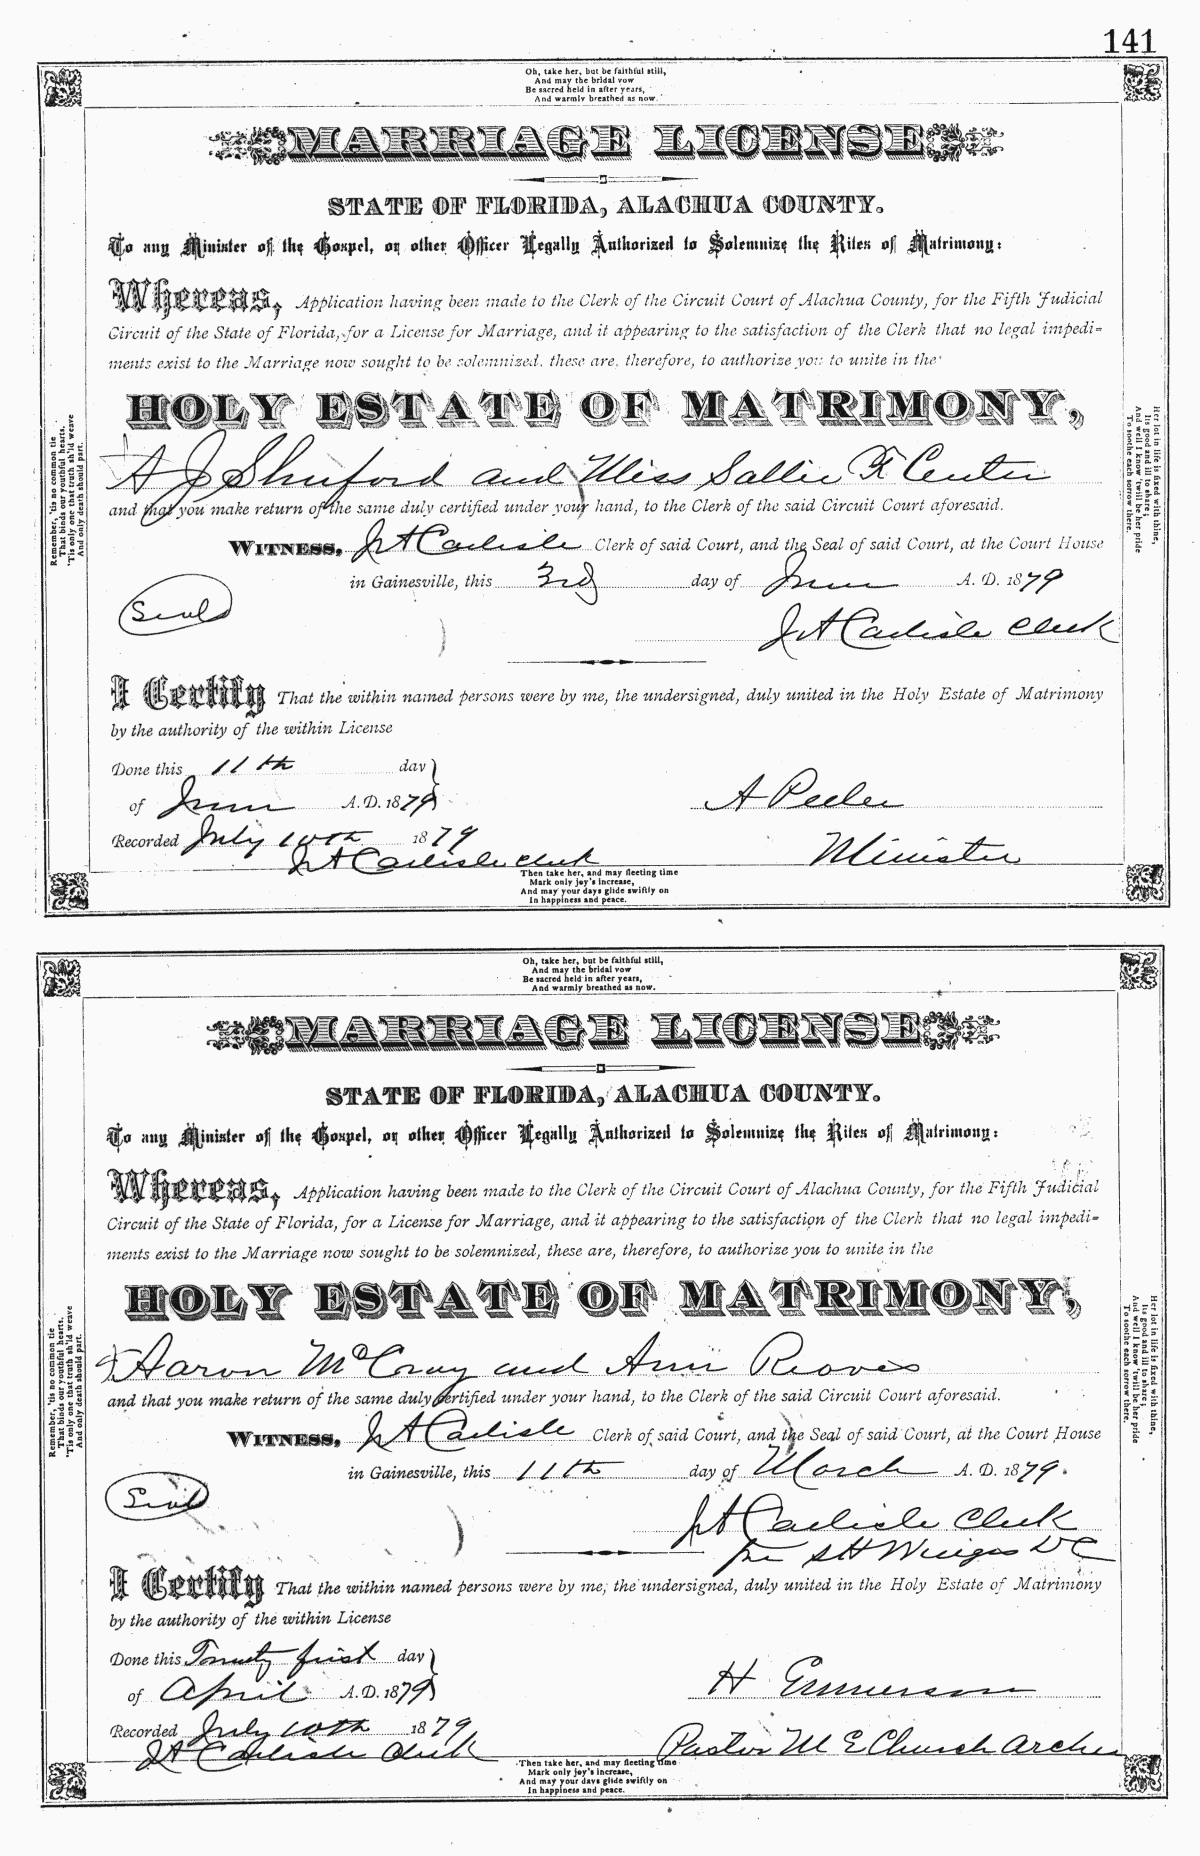 141
Oh, take her, but be faithful still,
And may the bridal vow
Be sacred held in after years,
And warmly breathed as now.
MARRIAGE LICENSE
STATE OF FLORIDA, ALACHUA COUNTY.
To any Minister of the Gospel, or other Officer Legally Authorized to Solemnize the Rites of Matrimony:
Whereas, Application having been made to the Clerk of the Circuit Court of Alachua County, for the Fifth Judicial
Circuit of the State of Florida, for a License for Marriage, and it appearing to the satisfaction of the Clerk that no legal impedi=
ments exist to the Marriage now sought to be solemnized, these are, therefore, to authorize you to unite in the
HOLY ESTATE OF MATRIMONY,
A J Shuford and Miss Sallie F Center
and that you make return of the same duly certified under your hand, to the Clerk of the said Circuit Court aforesaid.
WITNESS, J A Carlisle Clerk of said Court, and the Seal of said Court, at the Court House
in Gainesville, this 3rd day of June A. D. 1879
Seal
J A Carlisle Clerk
I Certify That the within named persons were by me, the undersigned, duly united in the Holy Estate of Matrimony
by the authority of the within License
Done this 11th day
of June A.D. 1879
A Peeler
Recorded July 10th 1879
Minister
J A Carlisle Clerk
Then take her, and may fleeting time
Mark only joy's increase,
And may your days glide swiftly on
In happiness and peace.
Remember, 'tis no common tie
That binds our youthful hearts,
'Tis only one that truth sh'ld weave
And only death should part.
Her lot in life is fixed with thine,
Its good and ill to share;
And well I know 'twill be her pride
To soothe each sorrow there.
Oh, take her, but be faithful still,
And may the bridal vow
Be sacred held in after years,
And warmly breathed as now.
MARRIAGE LICENSE
STATE OF FLORIDA, ALACHUA COUNTY.
To any Minister of the Gospel, or other Officer Legally Authorized to Solemnize the Rites of Matrimony:
Whereas, Application having been made to the Clerk of the Circuit Court of Alachua County, for the Fifth Judicial
Circuit of the State of Florida, for a License for Marriage, and it appearing to the satisfaction of the Clerk that no legal impedi=
ments exist to the Marriage now sought to be solemnized, these are, therefore, to authorize you to unite in the
HOLY ESTATE OF MATRIMONY,
Aaron McCray and Ann Reaves
and that you make return of the same duly certified under your hand, to the Clerk of the said Circuit Court aforesaid.
WITNESS, J A Carlisle Clerk of said Court, and the Seal of said Court, at the Court House
in Gainesville, this 11th day of March A. D. 1879.
Seal
J A Carlisle Clerk
per S H Wienges DC
I Certify That the within named persons were by me, the undersigned, duly united in the Holy Estate of Matrimony
by the authority of the within License
Done this Twenty first day
of April A.D. 1879
H Emmerson
Recorded July 10th 1879
J A Carlisle Clerk
Pastor M E Church Archer
Then take her, and may fleeting time
Mark only joy's increase,
And may your days glide swiftly on
In happiness and peace.
Remember, 'tis no common tie
That binds our youthful hearts,
'Tis only one that truth sh'ld weave
And only death should part.
Her lot in life is fixed with thine,
Its good and ill to share;
And well I know 'twill be her pride
To soothe each sorrow there.